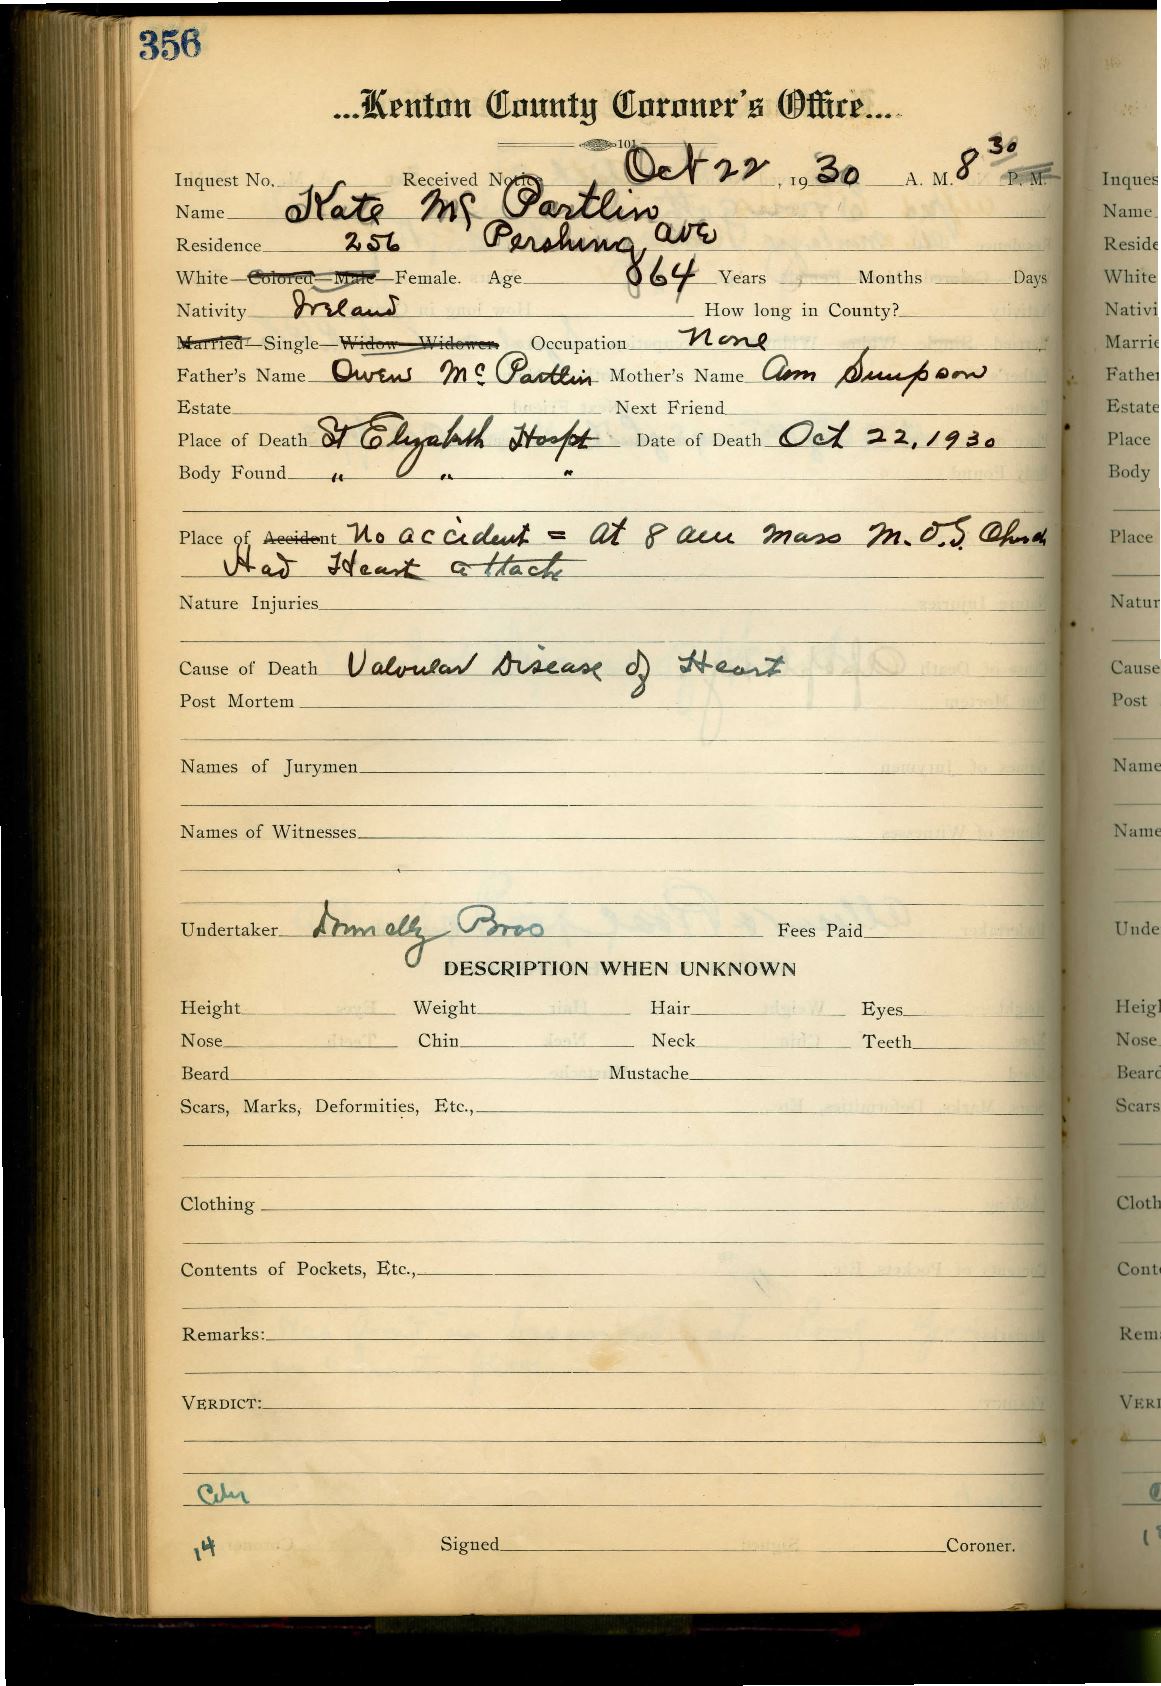 356
...Kenton County Coroner's Office...
101
Inquest No. Received Notice Oct 22, 1930 A. M. 8 30 P. M.
Name Kate Mc Partlin
Residence 256 Pershing ave
White—Colored—Male—Female. Age 64 Years Months Days
Nativity Ireland How long in County?
Married—Single—Widow—Widower. Occupation None
Father's Name Owen Mc Partlin Mother's Name Ann Simpson
Estate Next Friend
Place of Death St Elizabeth Hospt Date of Death Oct 22, 1930
Body Found " " "
Place of Accident No accident = at 8 am mass M.O.G. Church
Had Heart attack
Nature Injuries
Cause of Death Valvular Disease of Heart
Post Mortem
Names of Jurymen
Names of Witnesses
Undertaker Donnelly Bros Fees Paid
DESCRIPTION WHEN UNKNOWN
Height Weight Hair Eyes
Nose Chin Neck Teeth
Beard Mustache
Scars, Marks, Deformities, Etc.,
Clothing
Contents of Pockets, Etc.,
Remarks:
VERDICT:
14 Signed Coroner.
Inques
Name
Reside
White
Nativi
Marrie
Father
Estate
Place
Body
Place
Natur
Cause
Post
Name
Name
Unde
Heigh
Nose
Beard
Scars
Cloth
Cont
Rem
VERI